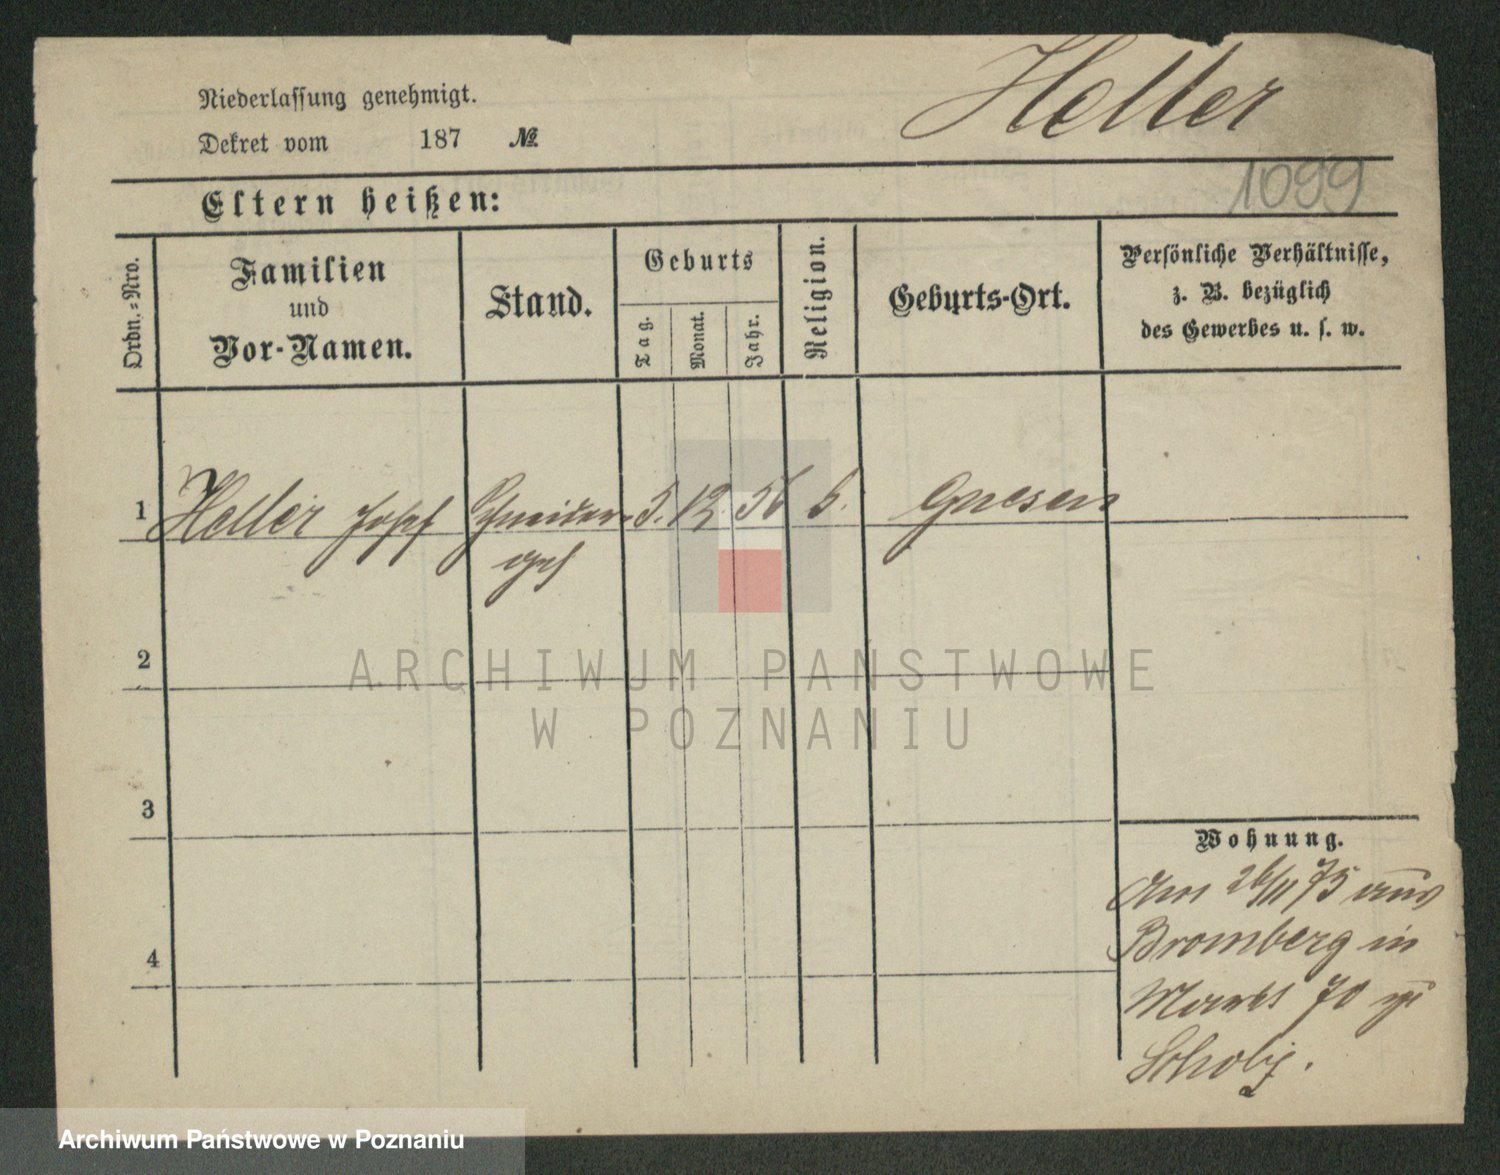 Heller
Niederlassung genehmigt.
Dekret vom 187 №
1099
Eltern heißen:
Ordn.-Nro.
Familien
und
Vor-Namen.
Stand.
Geburts
Tag.
Monat.
Jahr.
Religion.
Geburts-Ort.
Persönliche Verhältnisse,
z. B. bezüglich
des Gewerbes u. s. w.
1 Heller Josef Schneider- 5. 12. 56 Gnesen
2
3
4
ARCHIWUM PAŃSTWOWE
W POZNANIU
Wohnung.
Am 26/11 75 aus
Bromberg in
Markt 70
Archiwum Państwowe w Poznaniu